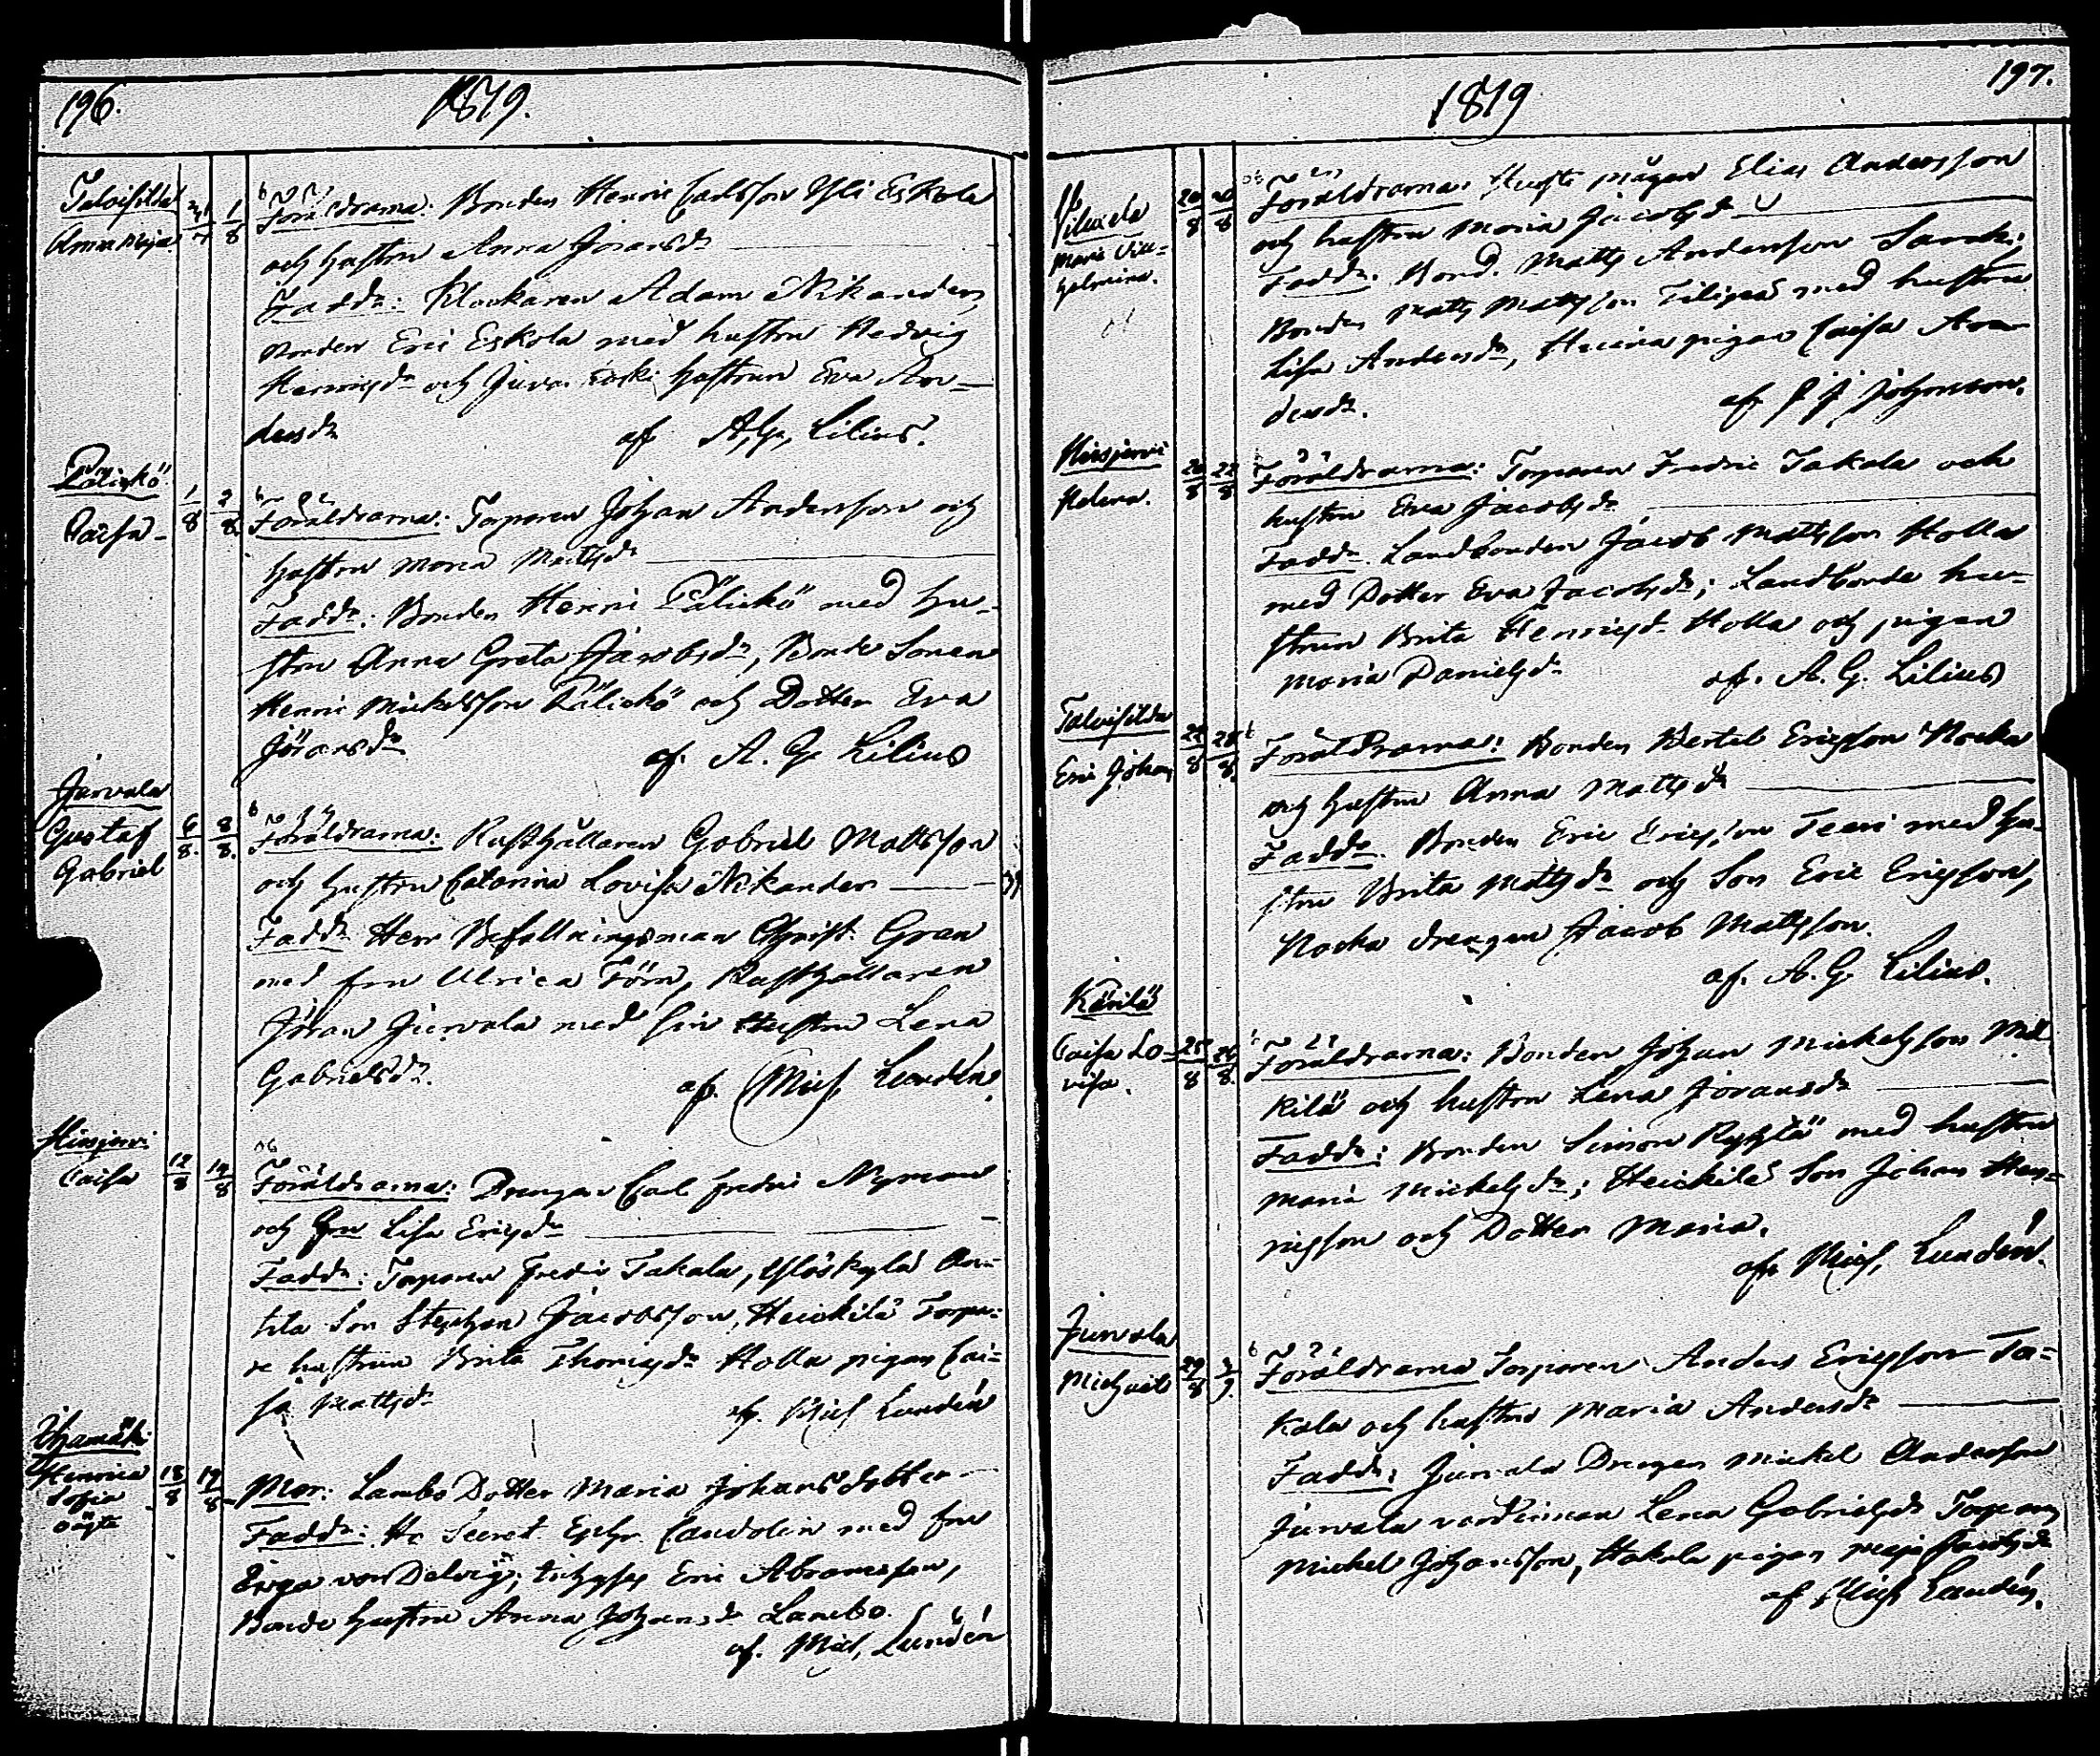 196.
1819.
Talvisilda
Anna Maja
31/7 1/8
Föräldrarna: Bonden Henric Carlsson Yli Eskola
och hustru Anna Joransdr
Faddr: Klockaren Adam Nikander,
Bonden Eric Eskola med hustru Hedvig
Henricsdr och hustrun Eva An-
dersdr af A. G. Lilius.
Pälickö
Caisa
1/8 2/8
Föräldrarna: Torparen Johan Andersson och
hustru Maria Mattsdr
Faddr: Bonden Henric Pälickö med hu-
stru Anna Greta Jacobsdr, Bonde Sonen
Henric Mickelsson Pälickö och Dotter Eva
Jöransdr af. A. G. Lilius
Jurvala
Gustaf
Gabriel
6/8. 8/8.
Föräldrarna: Rusthållaren Gabriel Mattsson
och hustru Catarina Lovisa Nikander
Faddr Herr Befallningsman Christ. Gran
med fru Ulrica Törn, Rusthållaren
Jöran Jurvala med sin Hustru Lena
Gabrielsdr. af. Mich. Lundén.
Hirsjervi
Caisa
12/8 14/8
Föräldrarna: Drengen Carl Fredric Nyman
och hustru Lisa Ericsdr
Faddr: Torparen Fredric Takala, Yliskylä An-
tila Son Stephan Jacobsson, Heickilä Torpa-
re hustrun Brita Thomasdr Holla pigan Cai-
sa Mattsdr af. Mich Lundén
Henrica
Sofia
oägta
18/8 19/8
Mor: Lambo Dotter Maria Johansdotter
Faddr: Hr Secret Candolin med fru
von Delvig; Eric Abramsson,
Bonde hustru Anna Johansdr Lambo.
af. Mich, Lundén
197.
1819
Maria Wil-
helmina.
20/8 20/8
Föräldrarna: Elias Andersson
och hustru Maria Jacobsdr
Faddr. Bond. Matts Andersson
Bonden Matts Mattsson med hustru
Lisa Andersdr, pigan Caisa An-
dersdr. af J. J. Johnsson.
Hirsjervi
Helena.
20/8 22/8
Föräldrarna: Torparen Fredric Takala och
hustru Eva Jacobsdr
Faddr. Landbonden Jacob Mattsson Holla
med Dotter Eva Jacobsdr; Landbonde hu-
strun Brita Henricsdr Holla och pigan
Maria Danielsdr af. A. G. Lilius
Talvisilda
Eric Johan
22/8 28/8
Föräldrarna: Bonden Bertel Ericsson Nocka
och hustru Anna Mattsdr
Faddr. Bonden Eric Ericsson Teeri med hu-
stru Brita Mattsdr och Son Eric Ericsson,
Nocka drengen Jacob Mattsson.
af. A. G. Lilius.
Kärilä
Caisa Lo-
visa.
25/8 26/8.
Föräldrarna: Bonden Johan Mickelsson Mic-
kilä och hustru Lena Joransdr
Faddr: Bonden Simon med hustru
Maria Mickelsdr; Heickilä Son Johan Hen-
ricsson och Dotter Maria.
af Mich, Lundén.
Jurvala
Michael
29/8 3/9
Föräldrarna Torparen Anders Ericsson Ta-
kala och hustru Maria Andersdr
Faddr: Jurvala Drengen Mickel Andersson
Jurvala värdinnan Lena Gabrielsdr Torparen
Mickel Johansson, Hakala pigan Maja Jacobsdr
af Mich Lundén.